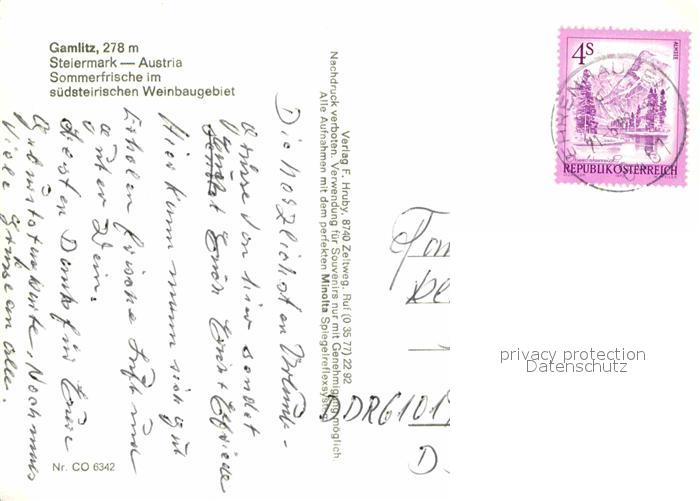 Gamlitz, 278 m
Steiermark — Austria
Sommerfrische im
südsteirischen Weinbaugebiet
Die herzlichsten Urlaub-
Grüsse von hier sendet
Euch
Hier kann mann sich gut
Erholen frische Luft und
guter Wein.
Besten Dank für Eure
Geburtstagskarte. Nochmals
Viele Grüsse an alle.
Nr. CO 6342
Verlag F. Hruby, 8740 Zeltweg. Ruf (0 35 77) 22 92
Nachdruck verboten. Verwendung für Souvenirs nur mit Genehmigung möglich.
Alle Aufnahmen mit dem perfekten Minolta Spiegelreflexsystem
4 S
ALMSEE
REPUBLIK ÖSTERREICH
Fam
DDR 6101
D
privacy protection
Datenschutz